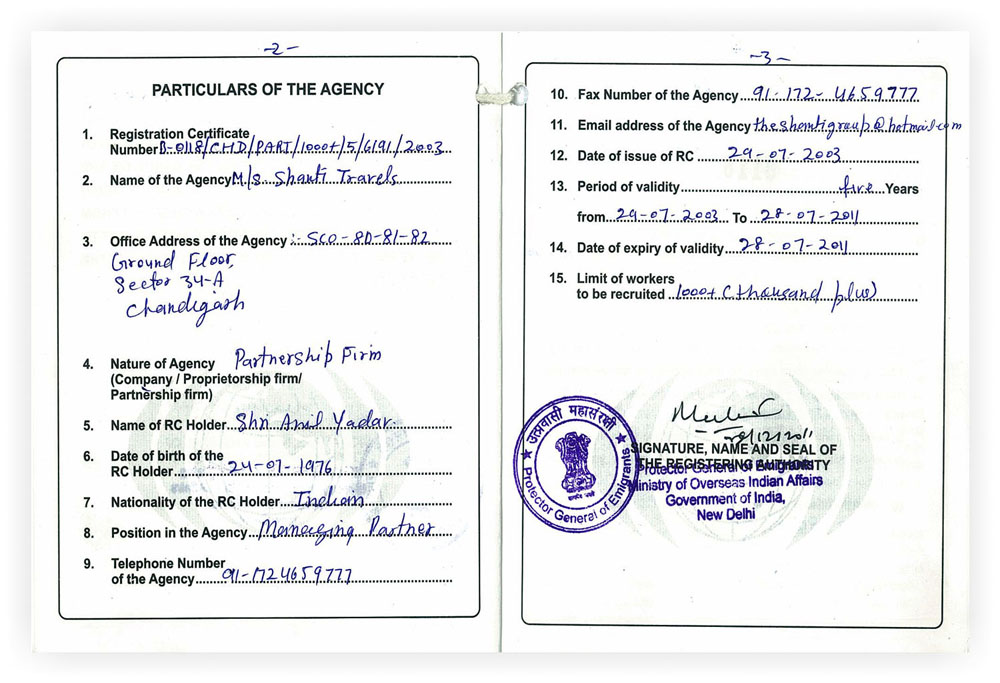 -2-
PARTICULARS OF THE AGENCY
1. Registration Certificate
Number B-0118/CHD/PART/1000+/5/6191/2003
2. Name of the Agency M/s. Shanti Travels
3. Office Address of the Agency :- SCO-80-81-82
Ground Floor,
Sector 34-A
Chandigarh
4. Nature of Agency Partnership Firm
(Company / Proprietorship firm/
Partnership firm)
5. Name of RC Holder Shri Anil Yadav
6. Date of birth of the
RC Holder 24-07-1976
7. Nationality of the RC Holder Indian
8. Position in the Agency Managing Partner
9. Telephone Number
of the Agency 91-1724659777
-3-
10. Fax Number of the Agency 91-172-4659777
11. Email address of the Agency theshantigroup@hotmail.com
12. Date of issue of RC 29-07-2003
13. Period of validity five Years
from 29-07-2003 To 28-07-2011
14. Date of expiry of validity 28-07-2011
15. Limit of workers
to be recruited 1000+ (thousand plus)
उत्प्रवासी महासंरक्षी
Protector General of Emigrants
SIGNATURE, NAME AND SEAL OF
THE REGISTERING AUTHORITY
Protector General of Emigrants
Ministry of Overseas Indian Affairs
Government of India,
New Delhi